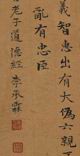 義智惠出有大偽六親
亂有忠臣
老子道德經 李承霖